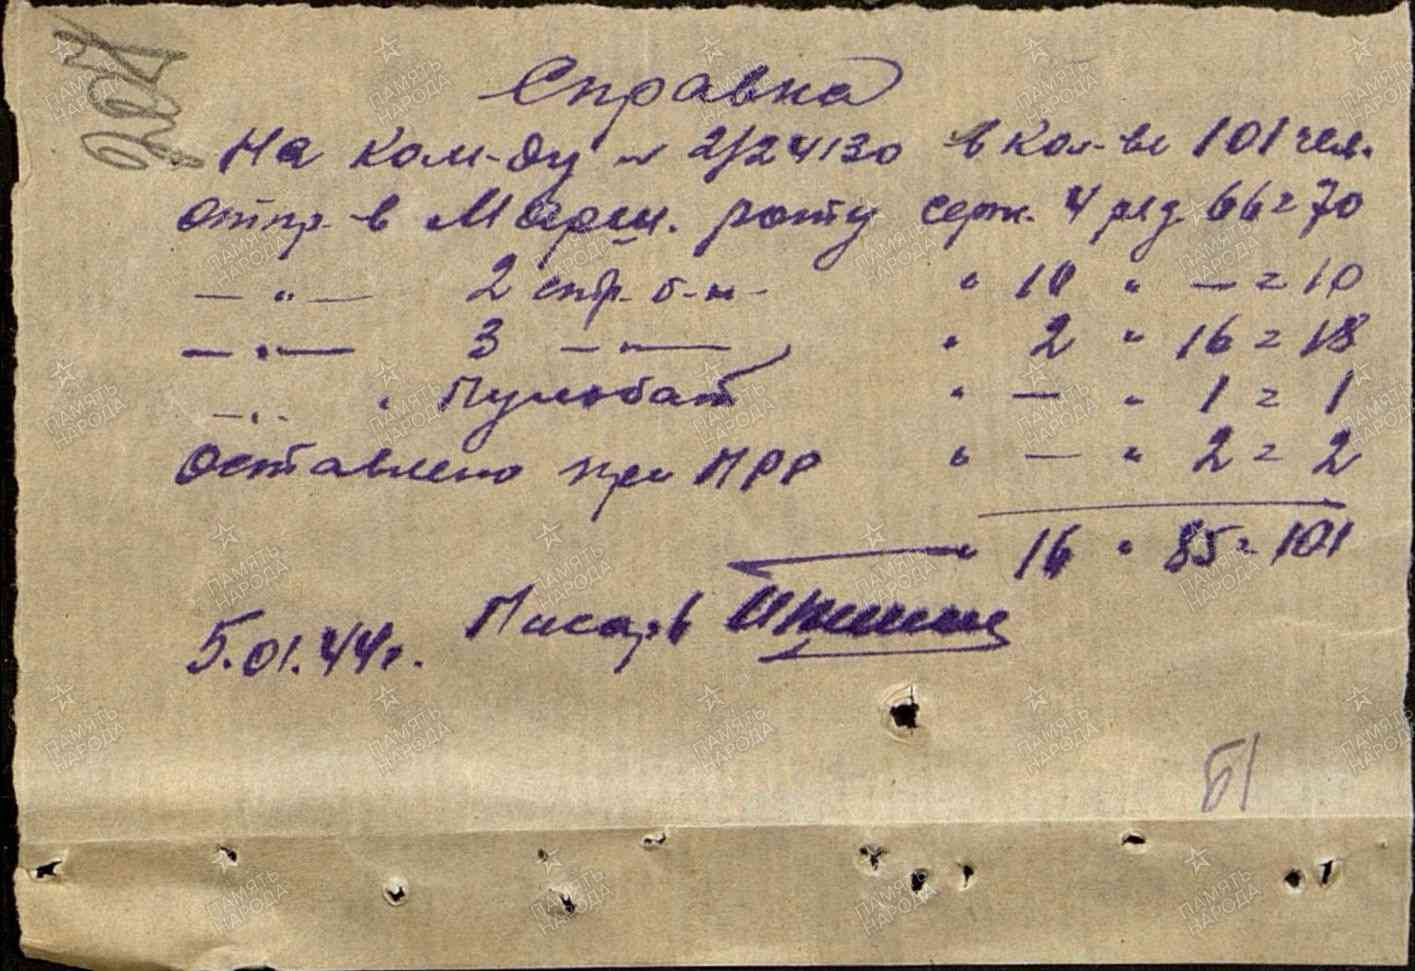 Справка
На ком-ду № 2/24130 в кол-ве 101 чел.
Отпр. в Марш. роту серж. 4 ряд 66 = 70
— " — 2 стр. б-н " 10 " — = 10
— " — 3 — " — " 2 " 16 = 18
— " — " Пульбат " — " 1 = 1
Оставлено при ПРР " — " 2 = 2
" 16 " 85 = 101
5.01.44г. Писарь
Б/